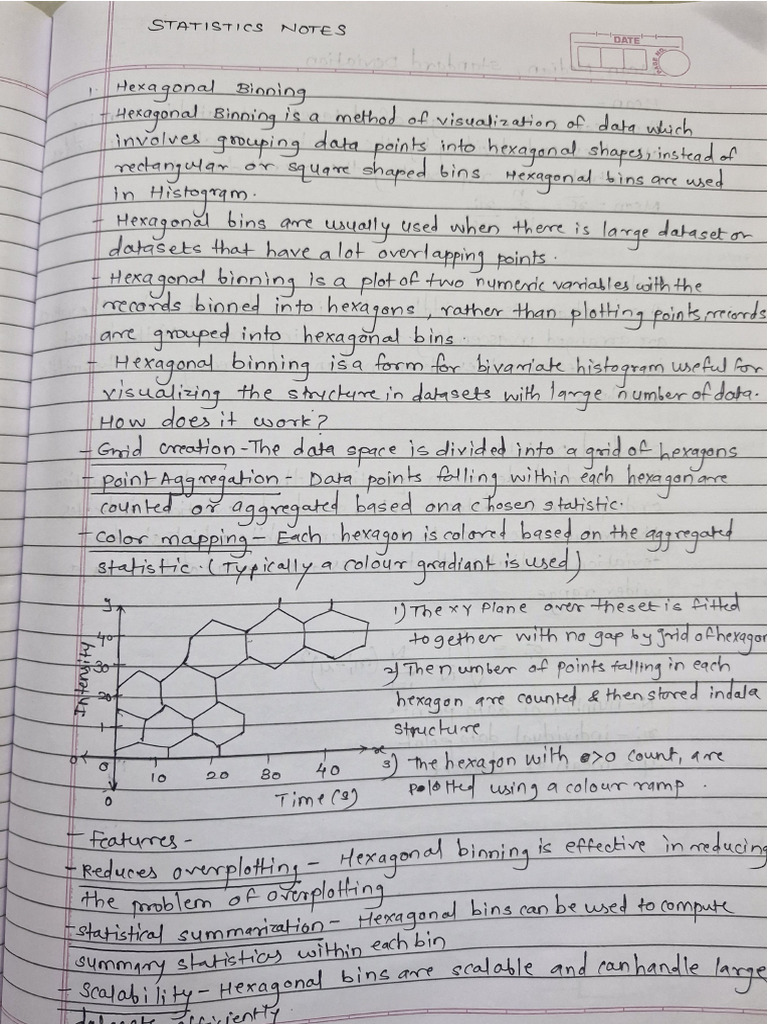 STATISTICS NOTES
DATE
1. Hexagonal Binning
- Hexagonal Binning is a method of visualization of data which
involves grouping data points into hexagonal shapes, instead of
rectangular or square shaped bins Hexagonal bins are used
in Histogram.
- Hexagonal bins are usually used when there is large dataset or
datasets that have a lot overlapping points.
- Hexagonal binning is a plot of two numeric variables with the
records binned into hexagons, rather than plotting points, records
are grouped into hexagonal bins.
- Hexagonal binning is a form for bivariate histogram useful for
visualizing the structure in datasets with large number of data.
How does it work?
- Grid creation - The data space is divided into a grid of hexagons
- Point Aggregation - Data points falling within each hexagon are
counted or aggregated based on a chosen statistic.
- Color mapping - Each hexagon is colored based on the aggregated
statistic. (Typically a colour gradiant is used)
y
40
30
20
1
0
Intensity
0 10 20 30 40 x
0
Time(s)
1) The xy Plane over the set is fitted
together with no gap by grid of hexagon
2) The number of points falling in each
hexagon are counted & then stored in data
structure
3) The hexagon with >0 count, are
plotted using a colour ramp.
- Features -
- Reduces overplotting - Hexagonal binning is effective in reducing
the problem of overplotting
- Statistical summarization - Hexagonal bins can be used to compute
summary statistics within each bin
- Scalability - Hexagonal bins are scalable and can handle large
datasets efficiently